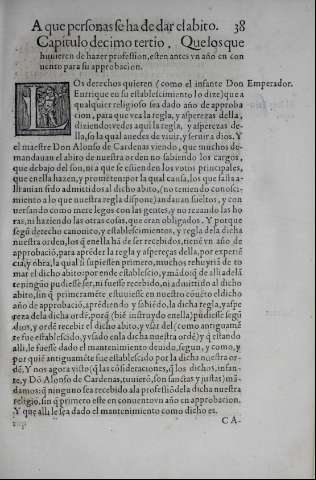 A que personas se ha de dar el abito. 38
Capitulo decimo tertio. Que los que
huuieren de hazer profession, esten antes vn año en con
uento para su approbacion.
LOs derechos quieren (como el infante Don Emperador.
Enrrique en su establescimiento lo dize) que a
qualquier religioso sea dado año de aproba
cion, para que vea la regla, y asperezas della,
diziendo vedes aqui la regla, y asperezas de-
lla, so la qual uuedes de viuir, y seruir a dios. Y
el maestre Don Alonso de Cardenas viendo, que muchos de-
mandauan el abito de nuestra orden no sabiendo los cargos,
que debajo del son, ni a que se estienden los votos principales,
que en ella hazen, y prometen por la qual causa, los que fasta a-
lli anian sido admitidos al dicho abito, (no teniendo conosci-
miento a lo que nuestra regla dispone) andauan sueltos, y con
uersando como mere legos con las gentes, y no rezando las ho
ras, ni haziendo las otras cosas, que eran obligados. Y porque
segũ derecho canonito, y establescimientos, y regla dela dicha
nuestra orden, los q̃ en ella hã de ser recebidos, tienẽ vn año de
approbaciõ, para apréder la regla y asperezas della, por experiẽ
cia, y obra, la qual si supiessen primero, muchos rehuyriã de to
mar el dicho abito: por ende establescio, y mãdo q̃ de alli adelã
te ningũo pudiesse ser, ni fuesse recebido, ni admittido al dicho
abito, sin q̃ primeramẽte estuuiesse en nuestro cõuẽto el dicho
año de approbaciõ, aprédendo y sabiẽdo, la dicha regla, y aspe
reza dela dicha ordẽ, porq̃ (biẽ instruydo en ella) pudiesse segũ
dios, y ordẽ recebir el dicho abito, y vsar del (como antiguamẽ
te fue establescido, y vsado en la dicha nuestra ordẽ) y q̃ estando
alli, le fuesse dado el mantenimiento deuido, segun, y como, y
por quiẽ antiguamẽte fue establescido por la dicha nuestra or
dẽ. Y nos agora visto (q̃ las cõsideraciones, q̃ los dichos, infan-
te, y Dõ Alonso de Cardenas, tuuierõ, son sanctas y justas) mã-
damos: q̃ ninguno sea recebido a la professiõ dela dicha nuestra
religio, sin q̃ primero este en conuento vn año en approbacion.
Y que alli le sea dado el mantenimiento como dicho es.
CA-